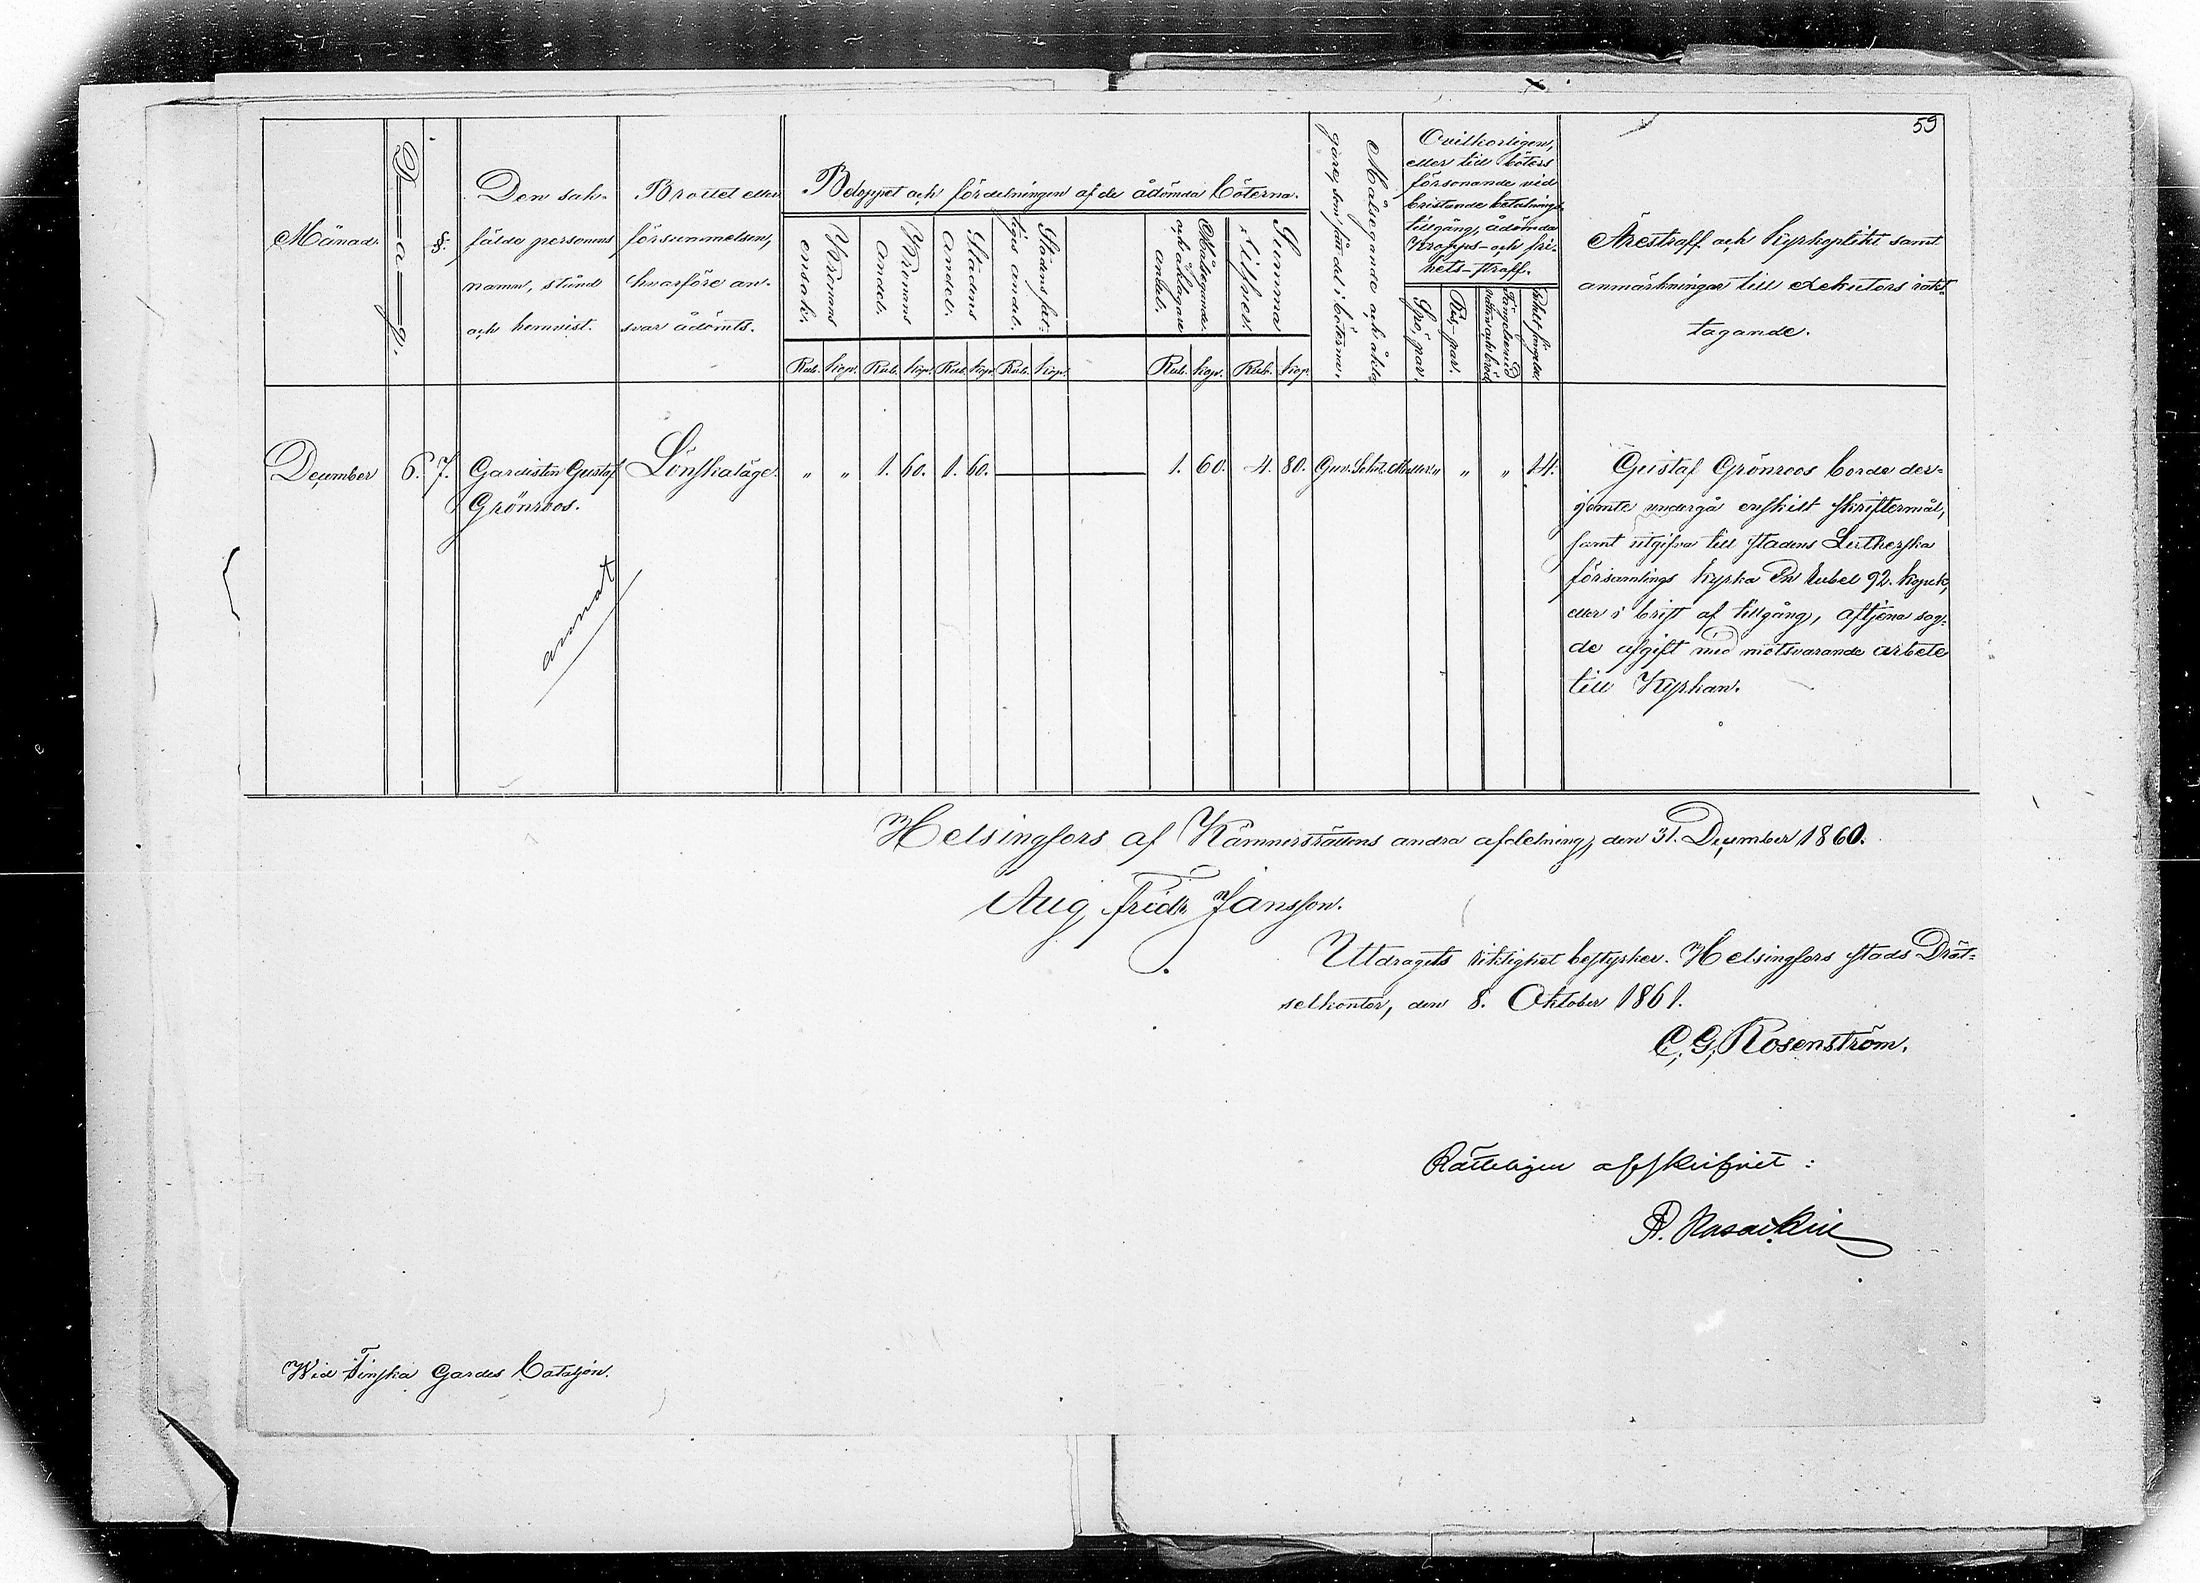 59
Månad.
Dag.
§.
Den sak-
fälda personens
namn, stånd
och hemvist.
Brottet eller
försummelsen,
hvarföre an-
svar ådömts.
Beloppet och fördelningen af de ådömda böterna.
Kronans
ensak.
Kronans
andel.
Stadens
andel.
Stadens fat-
tiges andel.
Målsegande
och åklagare
enkel.
Summa
Silfver.
Rub. Kop. Rub. Kop. Rub. Kop. Rub. Kop. Rub. Kop. Rub. Kop.
Målsegande och åkla-
gare, som få del i böterna.
Ovilkorligen,
eller till böters
försonande vid
bristande betalnings-
tillgång, ådömda
Kropps- och fri-
hets-straff.
Spö, par.
Ris, par.
Fängelse vid
vatten och bröd
Enkelt fängelse
Ärestraff och Kyrkoplikt samt
anmärkningar till exekutors iakt-
tagande.
December 6. 7. Gardisten Gustaf Lönskaläge. " " 1. 60. 1. 60. 1. 60. 4. 80. " " " 14.
Grönroos.
annat
Gustaf Grönroos borde der-
jemte undergå enskilt skriftermål,
samt utgifva till stadens Lutherska
församlings kyrka En rubel 92. kopek,
eller i brist af tillgång, aftjena sag-
de afgift med motsvarande arbete
till Kyrkan.
Helsingfors af Kämnersrättens andra afdelning, den 31. December 1860.
Aug. Fridr. Jansson.
Utdragets riktighet bestyrker. Helsingfors stads Drät-
selkontor, den 8. Oktober 1861.
C. G. Rosenström.
Rätteligen afskrifvet:
Wid Finska Gardes Bataljon.